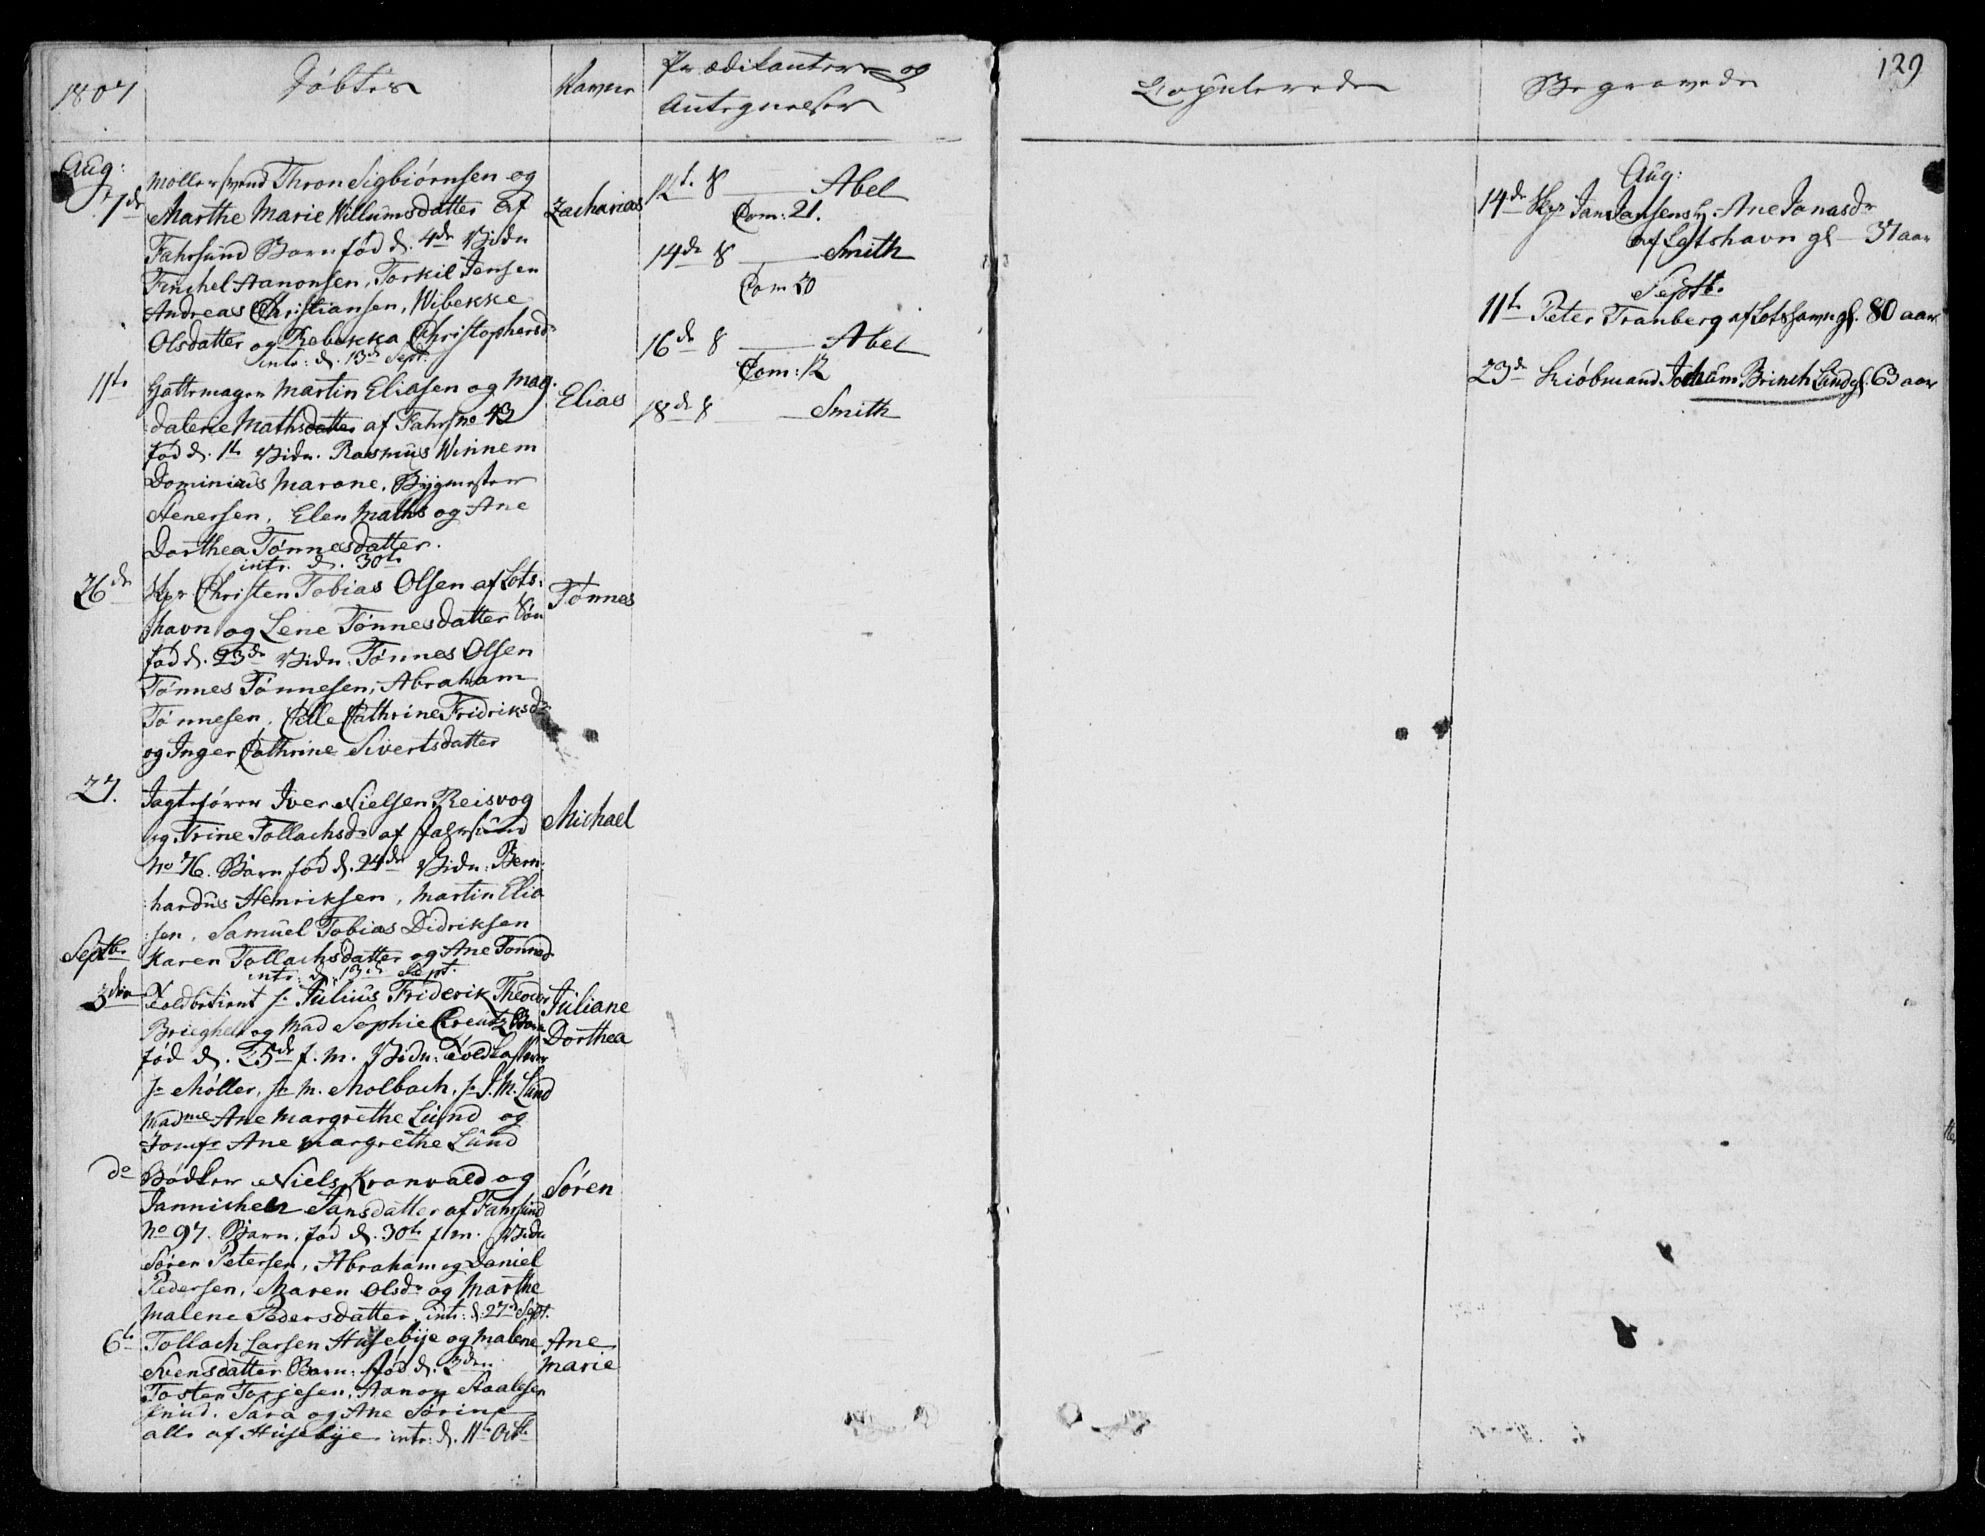 1807
Döbte
Navne
Prædikantere og
Antegnelser
Copulerede
Begravede
129
Aug:
7de
Møllersvend Thron Sigbiørnsen og
Marthe Marie Willumsdatter af
Fahrsund Barn fød d. 4de Vidn
Finchel Aanonsen, Torkil Jensen
Andreas Christiansen, Wibekke
Olsdatter og Rebekka Christophersdr
intr: d. 13de Sept.
Zacharias
11te
Hattemager Martin Eliasen og Mag-
dalene Mathsdatter af Fahrs no 43
fød d. 1te Vidn. Rasmus Winnem
Dominicus Marone, Bygmester
Stenersen, Elen Maths og Ane
Dorthea Tønnesdatter.
intr. d. 30te
Elias
26de
Skpr Christen Tobias Olsen af Lots-
havn og Lene Tönnesdatter Sön
fød d. 23de Vidn: Tönnes Olsen
Tönnes Tönnesen, Abraham
Tönnesen, Pelle Cathrine Fridriksdr
og Inger Cathrine Sivertsdatter
Tønnes
27.
Jagtefører Iver Nielsen Reisvog
og Trine Tollachsdr af Fahrsund
No 76. Barn fød d. 24de Vidn: Bern-
hardus Henriksen, Martin Elia
sen, Samuel Tobias Didriksen
Karen Tollachsdatter og Ane Tønnesd
intr: d. 13de Sept.
Michael
Septb.
3die
Toldbetient hr Julius Friderik Theodor
Brieghel og Mad Sophie Creutz Barn
fød d. 25de f. m. Vidn: Toldkasserer
hr Møller, hr M. Molbach, hr J. M. Lund
Madme Ane Margrethe Lund og
Jomfr Ane Margrethe Lund
Juliane
Dorthea
do
Bödker Niels Kronvald og
Jannichen Jansdatter af Fahrsund
No 97. Barn, fød d. 30te f. m. Vidn
Sören Petersen, Abraham og Daniel
Pedersen, Maren Olsdr og Marthe
Malene Pedersdatter, intr: d. 27de Sept.
Søren
6te
Tollach Larsen Husebye og Malene
Svensdatter Barn. fød d. 3den.
Tosten Torjesen, Aanon Staalesen
Knud, Sara og Ane Sørine
alle af Husebye intr: d. 11te Octb.
Ane
Marie
12te 8 — Abel
Com: 21.
14de 8 — Smith
Com 20
16de 8 — Abel
Com: 12
18de 8 — Smith
Aug:
14de Skpr Jan Jansens h. Ane Jonasdr
af Lotshavn gl — 37 aar
Septb.
11te Peter Tranberg af Lotshavn gl. 80 aar
23de Kiøbmand Jochum Brinch Lund gl. 63 aar